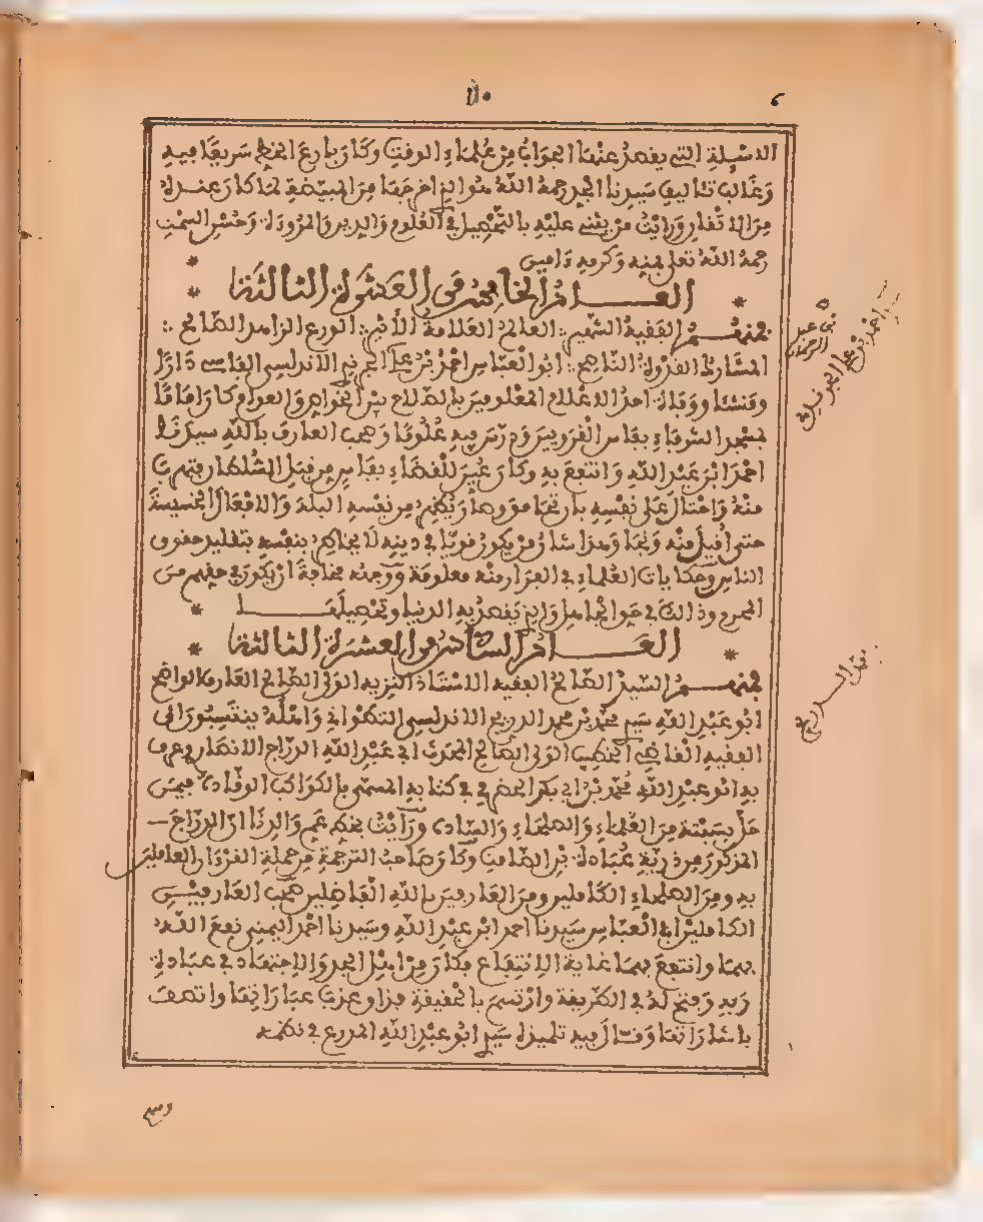 الاسئلة التي يقصر عنها الجواب من علماء الوقت وكان بارع الخط سريعا فيه
وغالب تئاليف سيدنا الجد رحمه الله هو الذي اخرجها من المبيضة لما كان عنده
من الاتقان ورأيت من يثني عليه بالتحصيل في العلوم والدين والمروءة وحسن السمت
رحمه الله تعلى بمنه وكرمه ءامين *
* العام الخامس من العشرة الثالثة *
فمنهم الفقيه الشهير العالم العلامة الأثير الورع الزاهد الصالح
المشارك القدوة الناصح ابو العباس احمد بن علي الجرندي الاندلسي الفاسي دارا
ومنشئا ووفاة احد الاعلام المعلومين بالصلاح بين الخواص والعوام كان اماما
بمسجد الشرفاء بفاس القرويين ودرس فيه علوما وصحب العارف بالله سيدنا
احمد ابن عبد الله وانتفع به وكان عين للقضاء بفاس من قبل السلطان فتهرب
منه واحتال على نفسه بان تحامق وصار يظهر من نفسه البله والافعال الخسيسة
حتى أقيل منه ونجا وهذا شان من يكون قويا في دينه لا يخاطر بنفسه بتقليد حقوق
الناس وحكايات العلماء في الفرار منه معلومة ووجهه مخافة ان يكون في حقهم من
المحرم وذلك في حق الجاهل والذي يقصد به الدنيا وتحصيلها *
* العام السادس من العشرة الثالثة *
فمنهم الشيخ الصالح الفقيه الاستاذ النزيه الولي الصالح العارف الواضح
ابو عبد الله سيدي محمد بن محمد الدريج الاندلسي التطواني واهله ينتسبون الى
الفقيه القاضي الخطيب الولي الصالح المحدث ابي عبد الله الدراج الانصاري عرف
به ابو عبد الله محمد بن ابي بكر الحضرمي في كتابه المسمى بالكواكب الوقادة فيمن
حل بسبتة من العلماء والصلحاء والسادة ورأيت بخط عم والدنا ان الدراج
المذكور من ذرية عبادة بن الصامت وكان صاحب الترجمة من حملة القرءان العاملين
به ومن الصلحاء الكاملين ومن العارفين بالله الفاضلين صحب العارفين
الكاملين ابا العباس سيدنا احمد ابن عبد الله وسيدنا احمد اليمني نفع الله
بهما وانتفع بهما غاية الانتفاع فكان من اهل الجد والاجتهاد في عبادة
ربه وفتح له في الطريقة وارتسم بالحقيقة فذاق عذب عباراتها واتصف
باشاراتها وقال فيه تلميذه سيدي ابو عبد الله المدرع في نظمه
احمد بن علي الجرندي
محمد الدريج